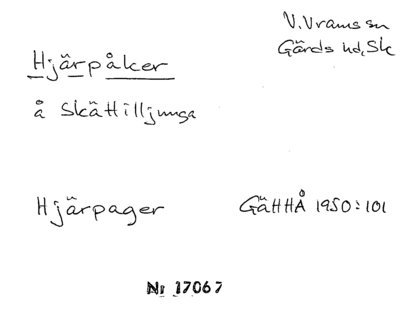 V. Vrams sn
Gärds hd, Sk
Hjärpåker
å Skättilljunga
Hjärpager
GÄHHÅ 1950:101
Nr 17067